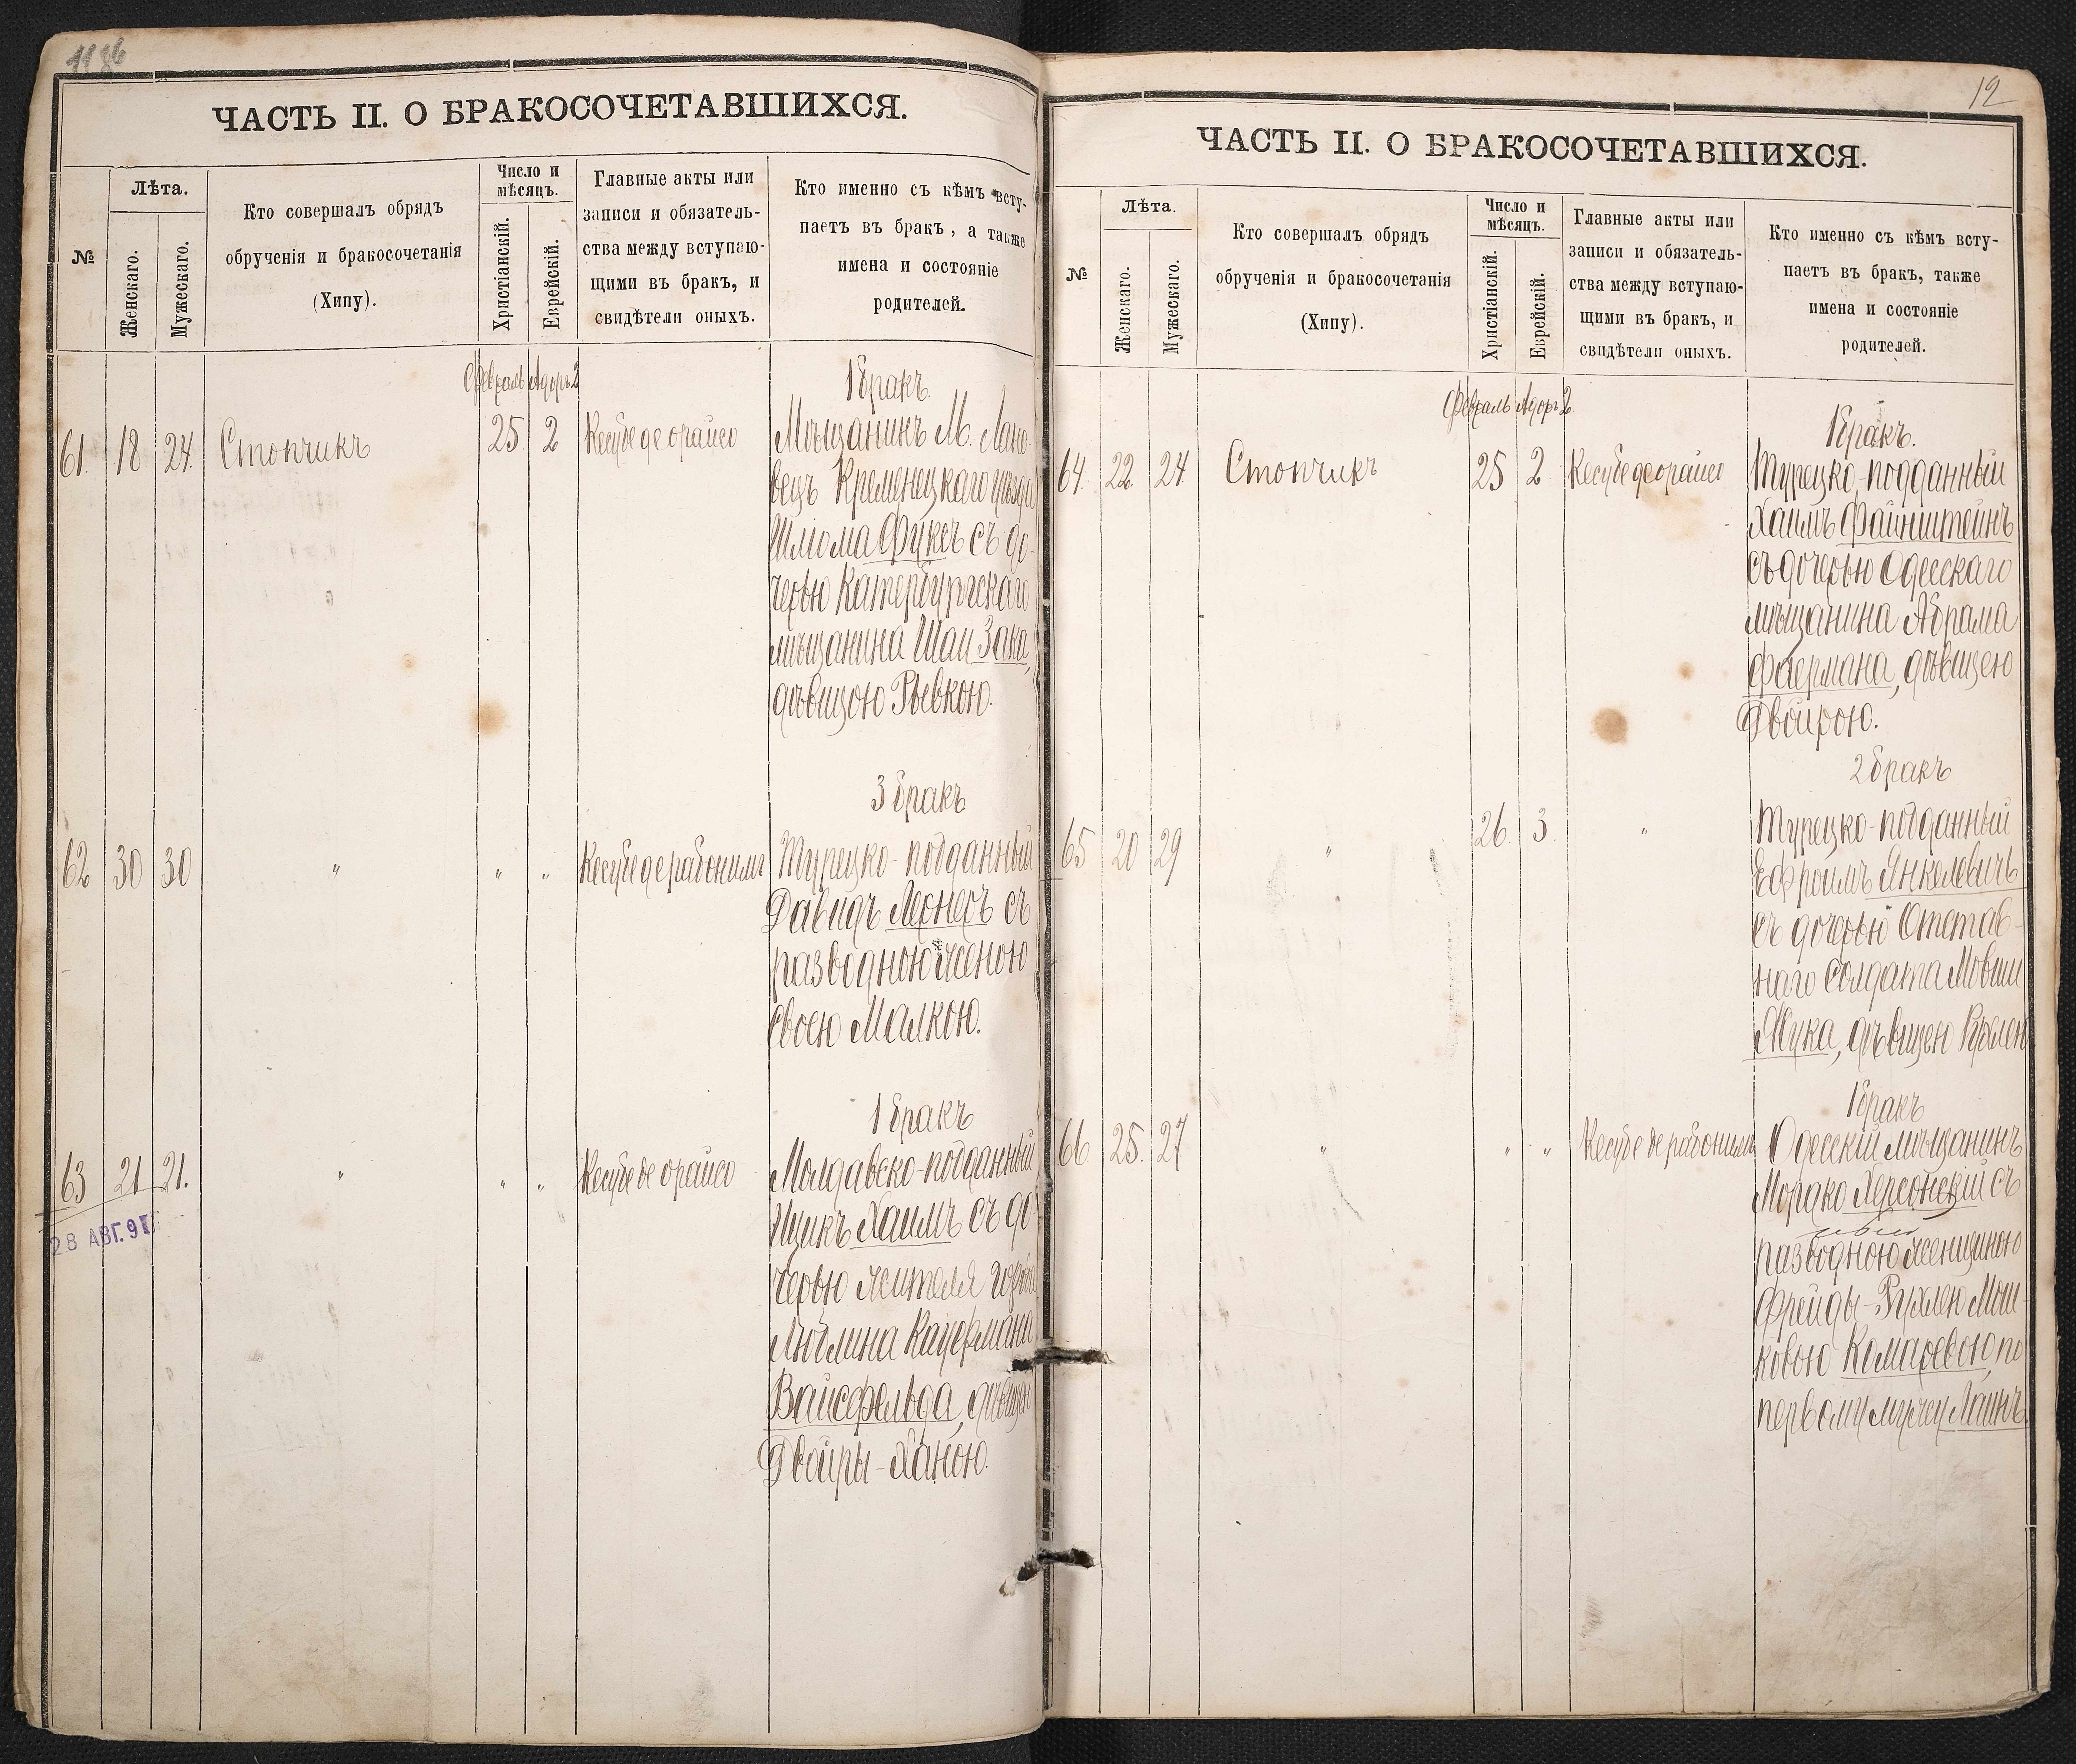 1186
ЧАСТЬ II. О БРАКОСОЧЕТАВШИХСЯ.
№
Лѣта.
Женскаго.
Мужескаго.
Кто совершалъ обрядъ
обрученія и бракосочетанія
(Хипу).
Число и
мѣсяцъ.
Христіанскій.
Еврейскій.
Главные акты или
записи и обязатель-
ства между вступаю-
щими въ бракъ, и
свидѣтели оныхъ.
Кто именно съ кѣмъ всту-
паетъ въ бракъ, а также
имена и состояніе
родителей.
Февраль Адоръ 2
1 бракъ.
61. 18 24. Стопчикъ 25 2 Кесубе де орайсо Мѣщанинъ М. Лано-
вецъ Кременецкаго уѣзда
Шлюма Фуксъ съ до-
черью Катербургскаго
мѣщанина Шаи Зака,
дѣвицою Рывкою.
3 бракъ
62 30 30 " " " Кесубе де рабонимъ Турецко-подданный
Давидъ Леонесъ съ
разводною женою
своею Малкою.
1 бракъ
63 21 21. " " " Кесубе де орайсо Молдавско-подданный
Ицикъ Хаимъ съ до-
черью жителя города
Люблина Кауфмана
Вайсфельда, дѣвицею
Двойры-Ханою.
28 АВГ. 91
12
ЧАСТЬ II. О БРАКОСОЧЕТАВШИХСЯ.
№
Лѣта.
Женскаго.
Мужескаго.
Кто совершалъ обрядъ
обрученія и бракосочетанія
(Хипу).
Число и
мѣсяцъ.
Христіанскій.
Еврейскій.
Главные акты или
записи и обязатель-
ства между вступаю-
щими въ бракъ, и
свидѣтели оныхъ.
Кто именно съ кѣмъ всту-
паетъ въ бракъ, также
имена и состояніе
родителей.
Февраль Адоръ 2
1 бракъ.
64. 22. 24 Стопчикъ 25 2 Кесубе де орайсо Турецко-подданный
Хаимъ Файнштейнъ
съ дочерью Одесскаго
мѣщанина Абрама
Фаермана, дѣвицею
Двойрою.
2 бракъ
65 20 29 " 26. 3. " Турецко-подданный
Ефроимъ Янкелевичъ
съ дочерью Отстав-
наго Солдата Мовши
Жука, дѣвицею Рухлею
1 бракъ
66 25. 27 " " " Кесубе де рабонимъ Одесскій мѣщанинъ
Морако Херсонскій съ
разводною женщиною
Фрейды-Рухлею Мош-
ковою Комаревою, по
первому мужу Лаинъ.